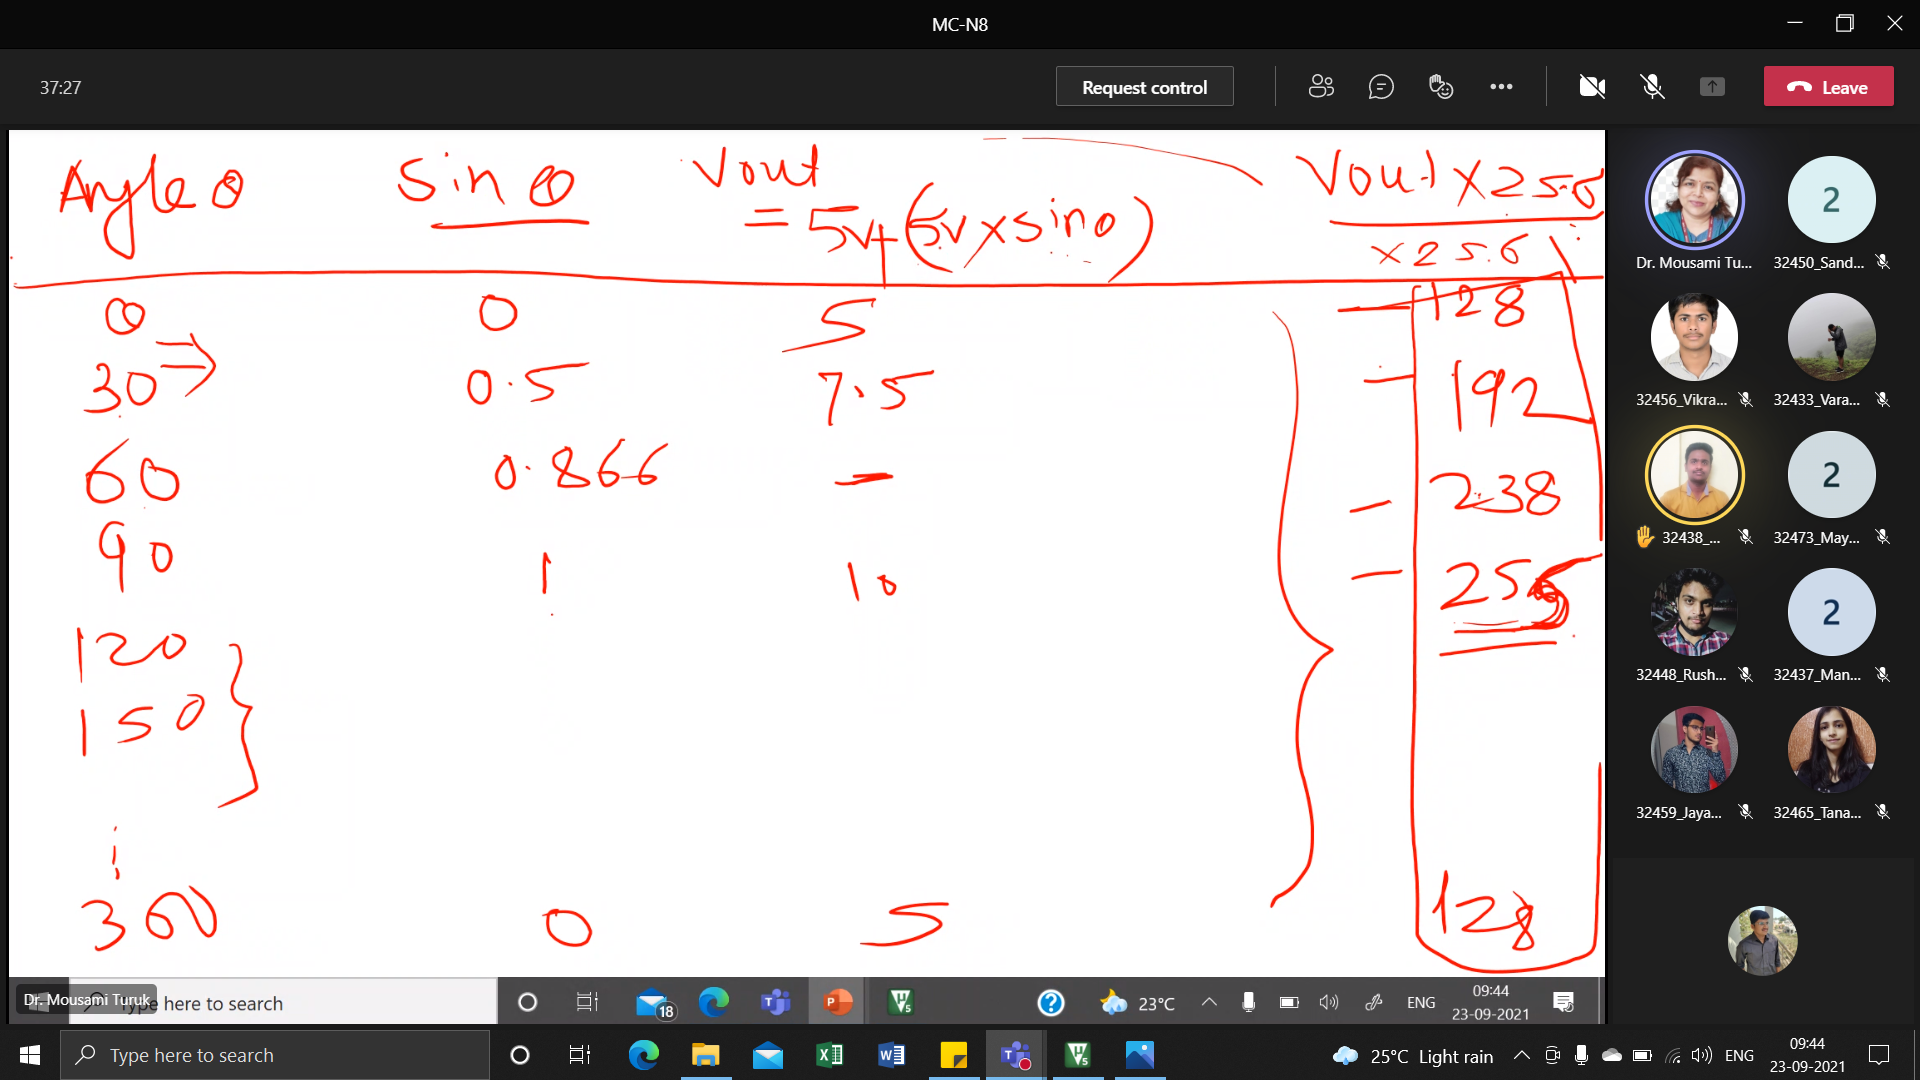 MC-N8
37:27
Request control
Leave
Angle θ Sin θ Vout Vout x 25.6
= 5v+(5v x sinθ) x 25.6
0 0 5 - 128
30 => 0.5 7.5 - 192
60 0.866 - - 238
90 1 10 - 255
120
150
360 0 5 128
Dr. Mousami Tu...
2
32450_Sand...
32456_Vikra...
32433_Vara...
2
32438_...
32473_May...
2
32448_Rush...
32437_Man...
32459_Jaya...
32465_Tana...
Dr. Mousami Turuk
Type here to search
18
23°C
ENG
09:44
23-09-2021
Type here to search
25°C Light rain
ENG
09:44
23-09-2021